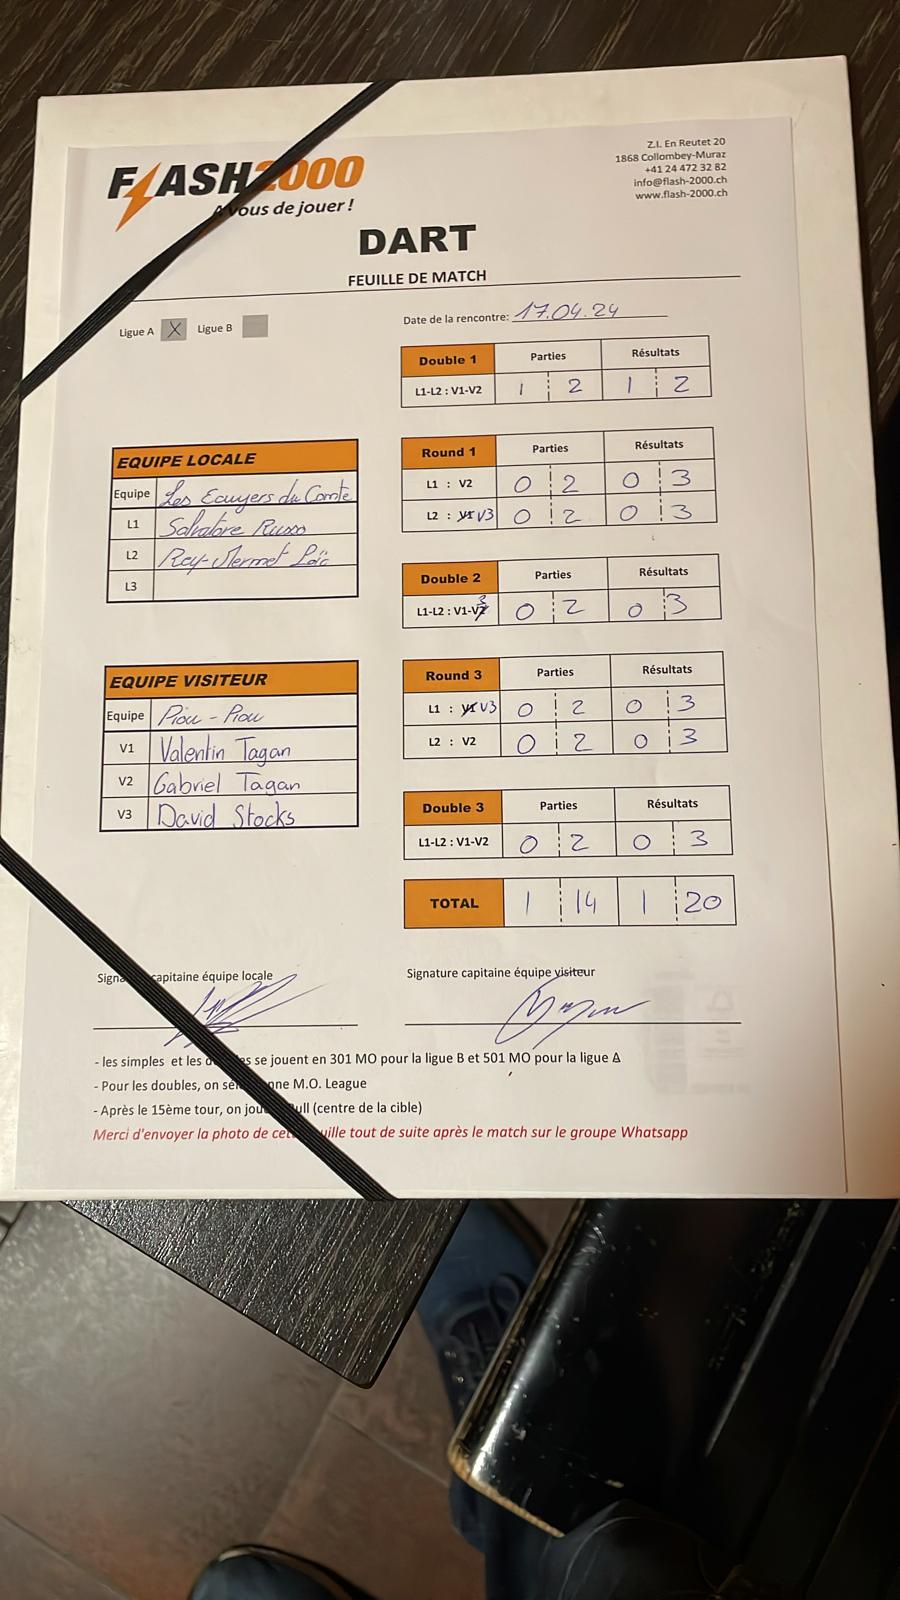 FLASH2000
A vous de jouer !
Z.I. En Reutet 20
1868 Collombey-Muraz
+41 24 472 32 82
info@flash-2000.ch
www.flash-2000.ch
DART
FEUILLE DE MATCH
Ligue A X Ligue B
Date de la rencontre: 17.04.24
Double 1 Parties Résultats
L1-L2 : V1-V2 1 2 1 2
EQUIPE LOCALE
Equipe Les Ecuyers du Comte
L1 Salvatore Russo
L2 Rey-Mermet Loïc
L3
Round 1 Parties Résultats
L1 : V2 0 2 0 3
L2 : V1 V3 0 2 0 3
Double 2 Parties Résultats
L1-L2 : V1-V2 3 0 2 0 3
EQUIPE VISITEUR
Equipe Piou-Piou
V1 Valentin Tagan
V2 Gabriel Tagan
V3 David Stocks
Round 3 Parties Résultats
L1 : V1 V3 0 2 0 3
L2 : V2 0 2 0 3
Double 3 Parties Résultats
L1-L2 : V1-V2 0 2 0 3
TOTAL 1 14 1 20
capitaine équipe locale
Signature capitaine équipe visiteur
- les simples et les se jouent en 301 MO pour la ligue B et 501 MO pour la ligue A
- Pour les doubles, on M.O. League
- Après le 15ème tour, on (centre de la cible)
Merci d'envoyer la photo de tout de suite après le match sur le groupe Whatsapp